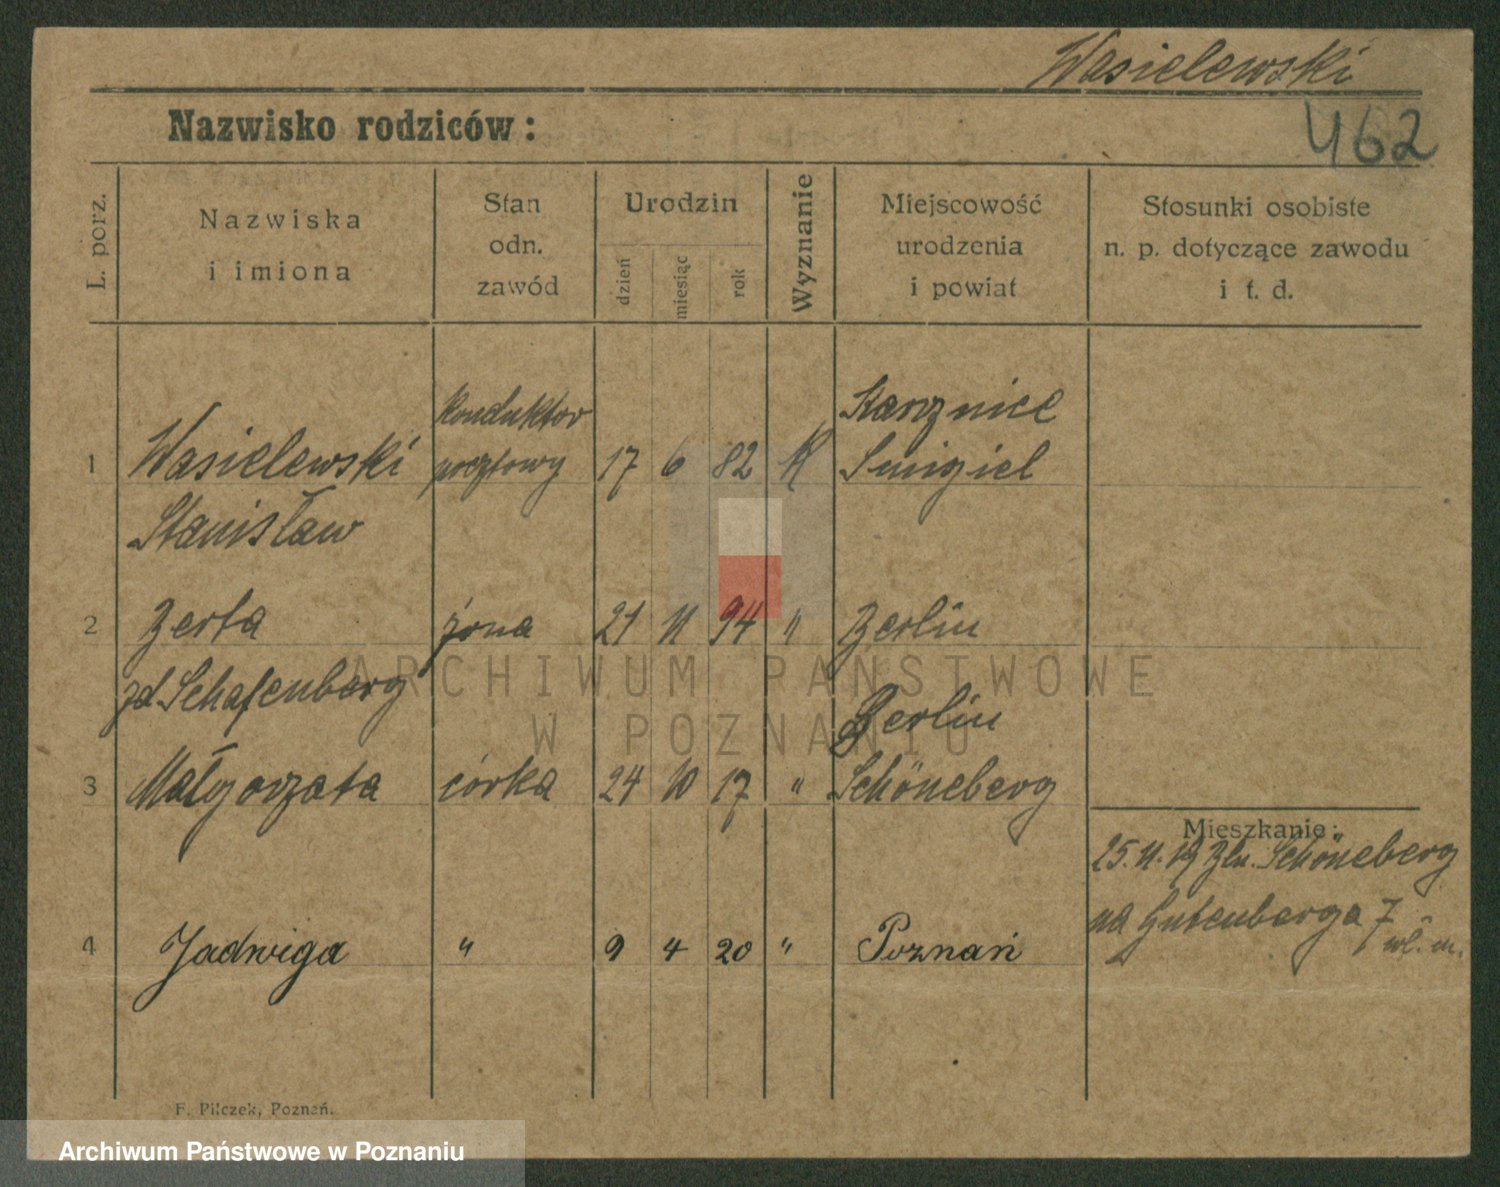 Wasielewski
Nazwisko rodziców:
462
L. porz.
Nazwiska
i imiona
Stan
odn.
zawód
Urodzin
dzień
miesiąc
rok
Wyznanie
Miejscowość
urodzenia
i powiat
Stosunki osobiste
n. p. dotyczące zawodu
i t. d.
konduktor Starznice
1 Wasielewski pocztowy 17 6 82 K Smigiel
Stanisław
2 Berta żona 21 11 94 " Berlin
zd. Schafenberg
Berlin
3 Małgorzata córka 24 10 17 " Schöneberg
Mieszkanie:
25. 11. 19 Bln. Schöneberg
na Gutenberga 7
4 Jadwiga " 9 4 20 " Poznań
F. Pilczek, Poznań.
ARCHIWUM PAŃSTWOWE
W POZNANIU
Archiwum Państwowe w Poznaniu